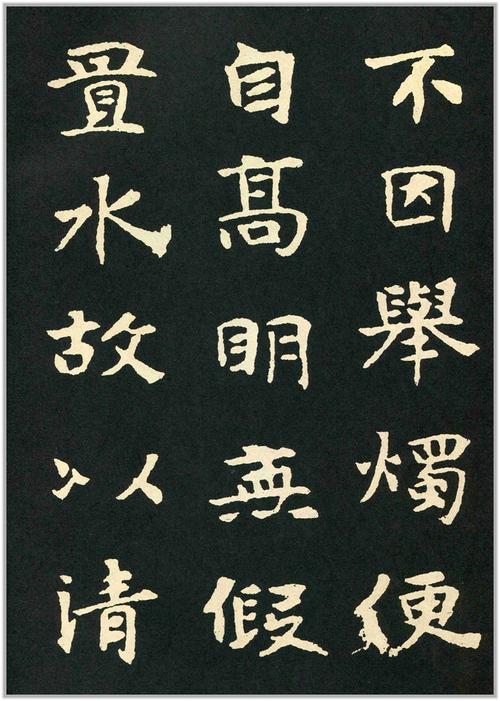 不因舉燭便
自髙明無假
置水故以清